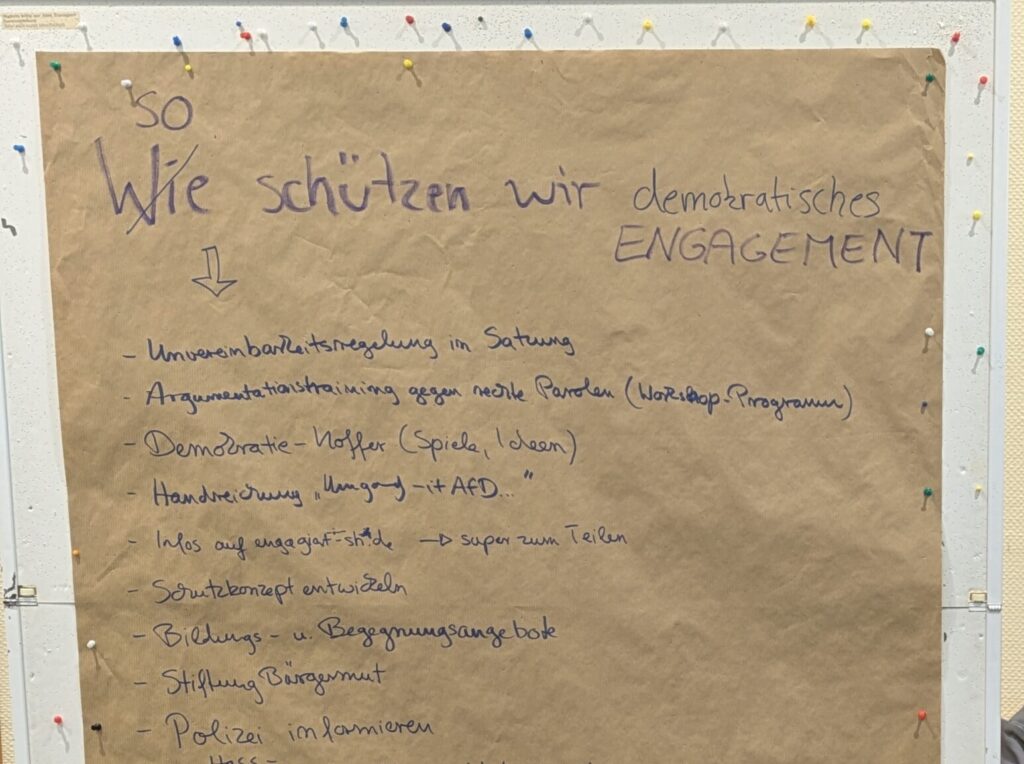 SO
Wie schützen wir demokratisches
ENGAGEMENT
- Unvereinbarkeitsregelung in Satzung
- Argumentationstraining gegen rechte Parolen (Workshop-Programm)
- Demokratie-Koffer (Spiele, Ideen)
- Handreichung „Umgang -it AfD..."
- Infos auf engagiert-sh.de → super zum Teilen
- Schutzkonzept entwickeln
- Bildungs- u. Begegnungsangebote
- Stiftung Bürgermut
- Polizei informieren
Hass-